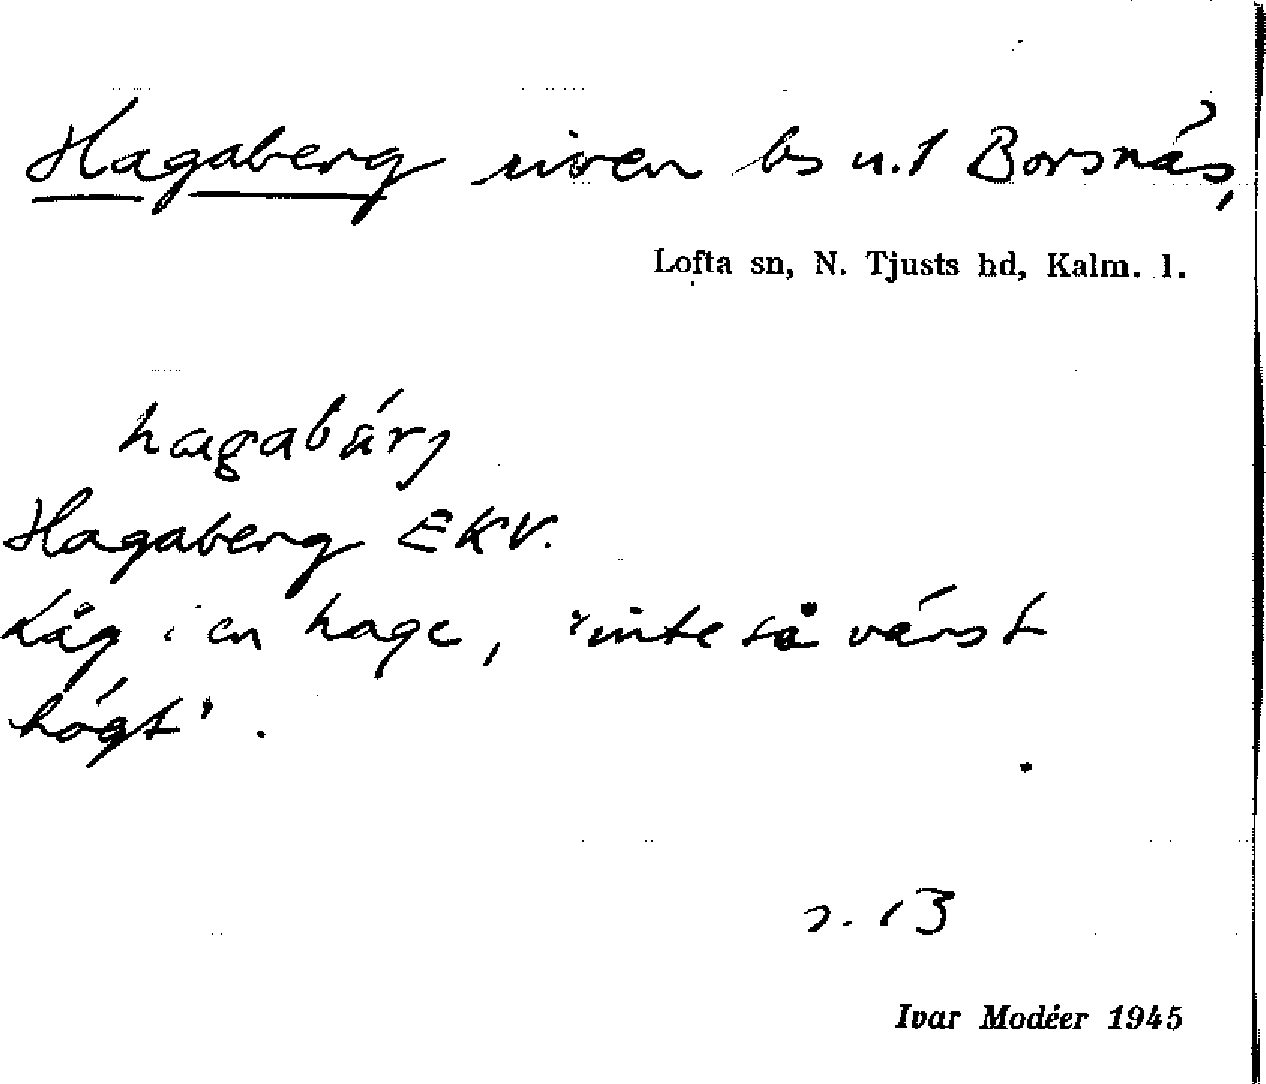 Hagaberg riven bs u. 1 Borsnäs,
Lofta sn, N. Tjusts hd, Kalm. l.
hagabärj
Hagaberg EKV.
Låg i en hage, "inte så värst
högt".
s. 13
Ivar Modéer 1945